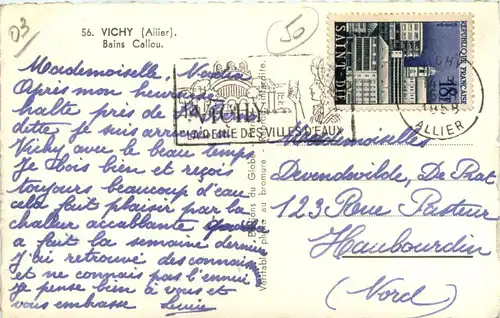 03
50
56. VICHY (Allier).
Bains Callou.
RÉPUBLIQUE FRANÇAISE
SAINT-DIÉ
18F
VICHY
LA REINE DES VILLES D'EAUX
ALLIER
Mademoiselle,
Après mon heureuse
halte près de
dette je suis arrivée
Vichy avec le beau temps.
Je bois bien et reçois
toujours beaucoup d'eau
cela fait plaisir par la
chaleur accablante
a fait la semaine dernière
J'ai retrouvé des connais
et ne connais pas l'ennui
je pense bien à vous et
vous embrasse
Véritable photo au bromure
Mademoiselles
Devendevilde, De Prat
123 Rue Pasteur
Haubourdin
(Nord)